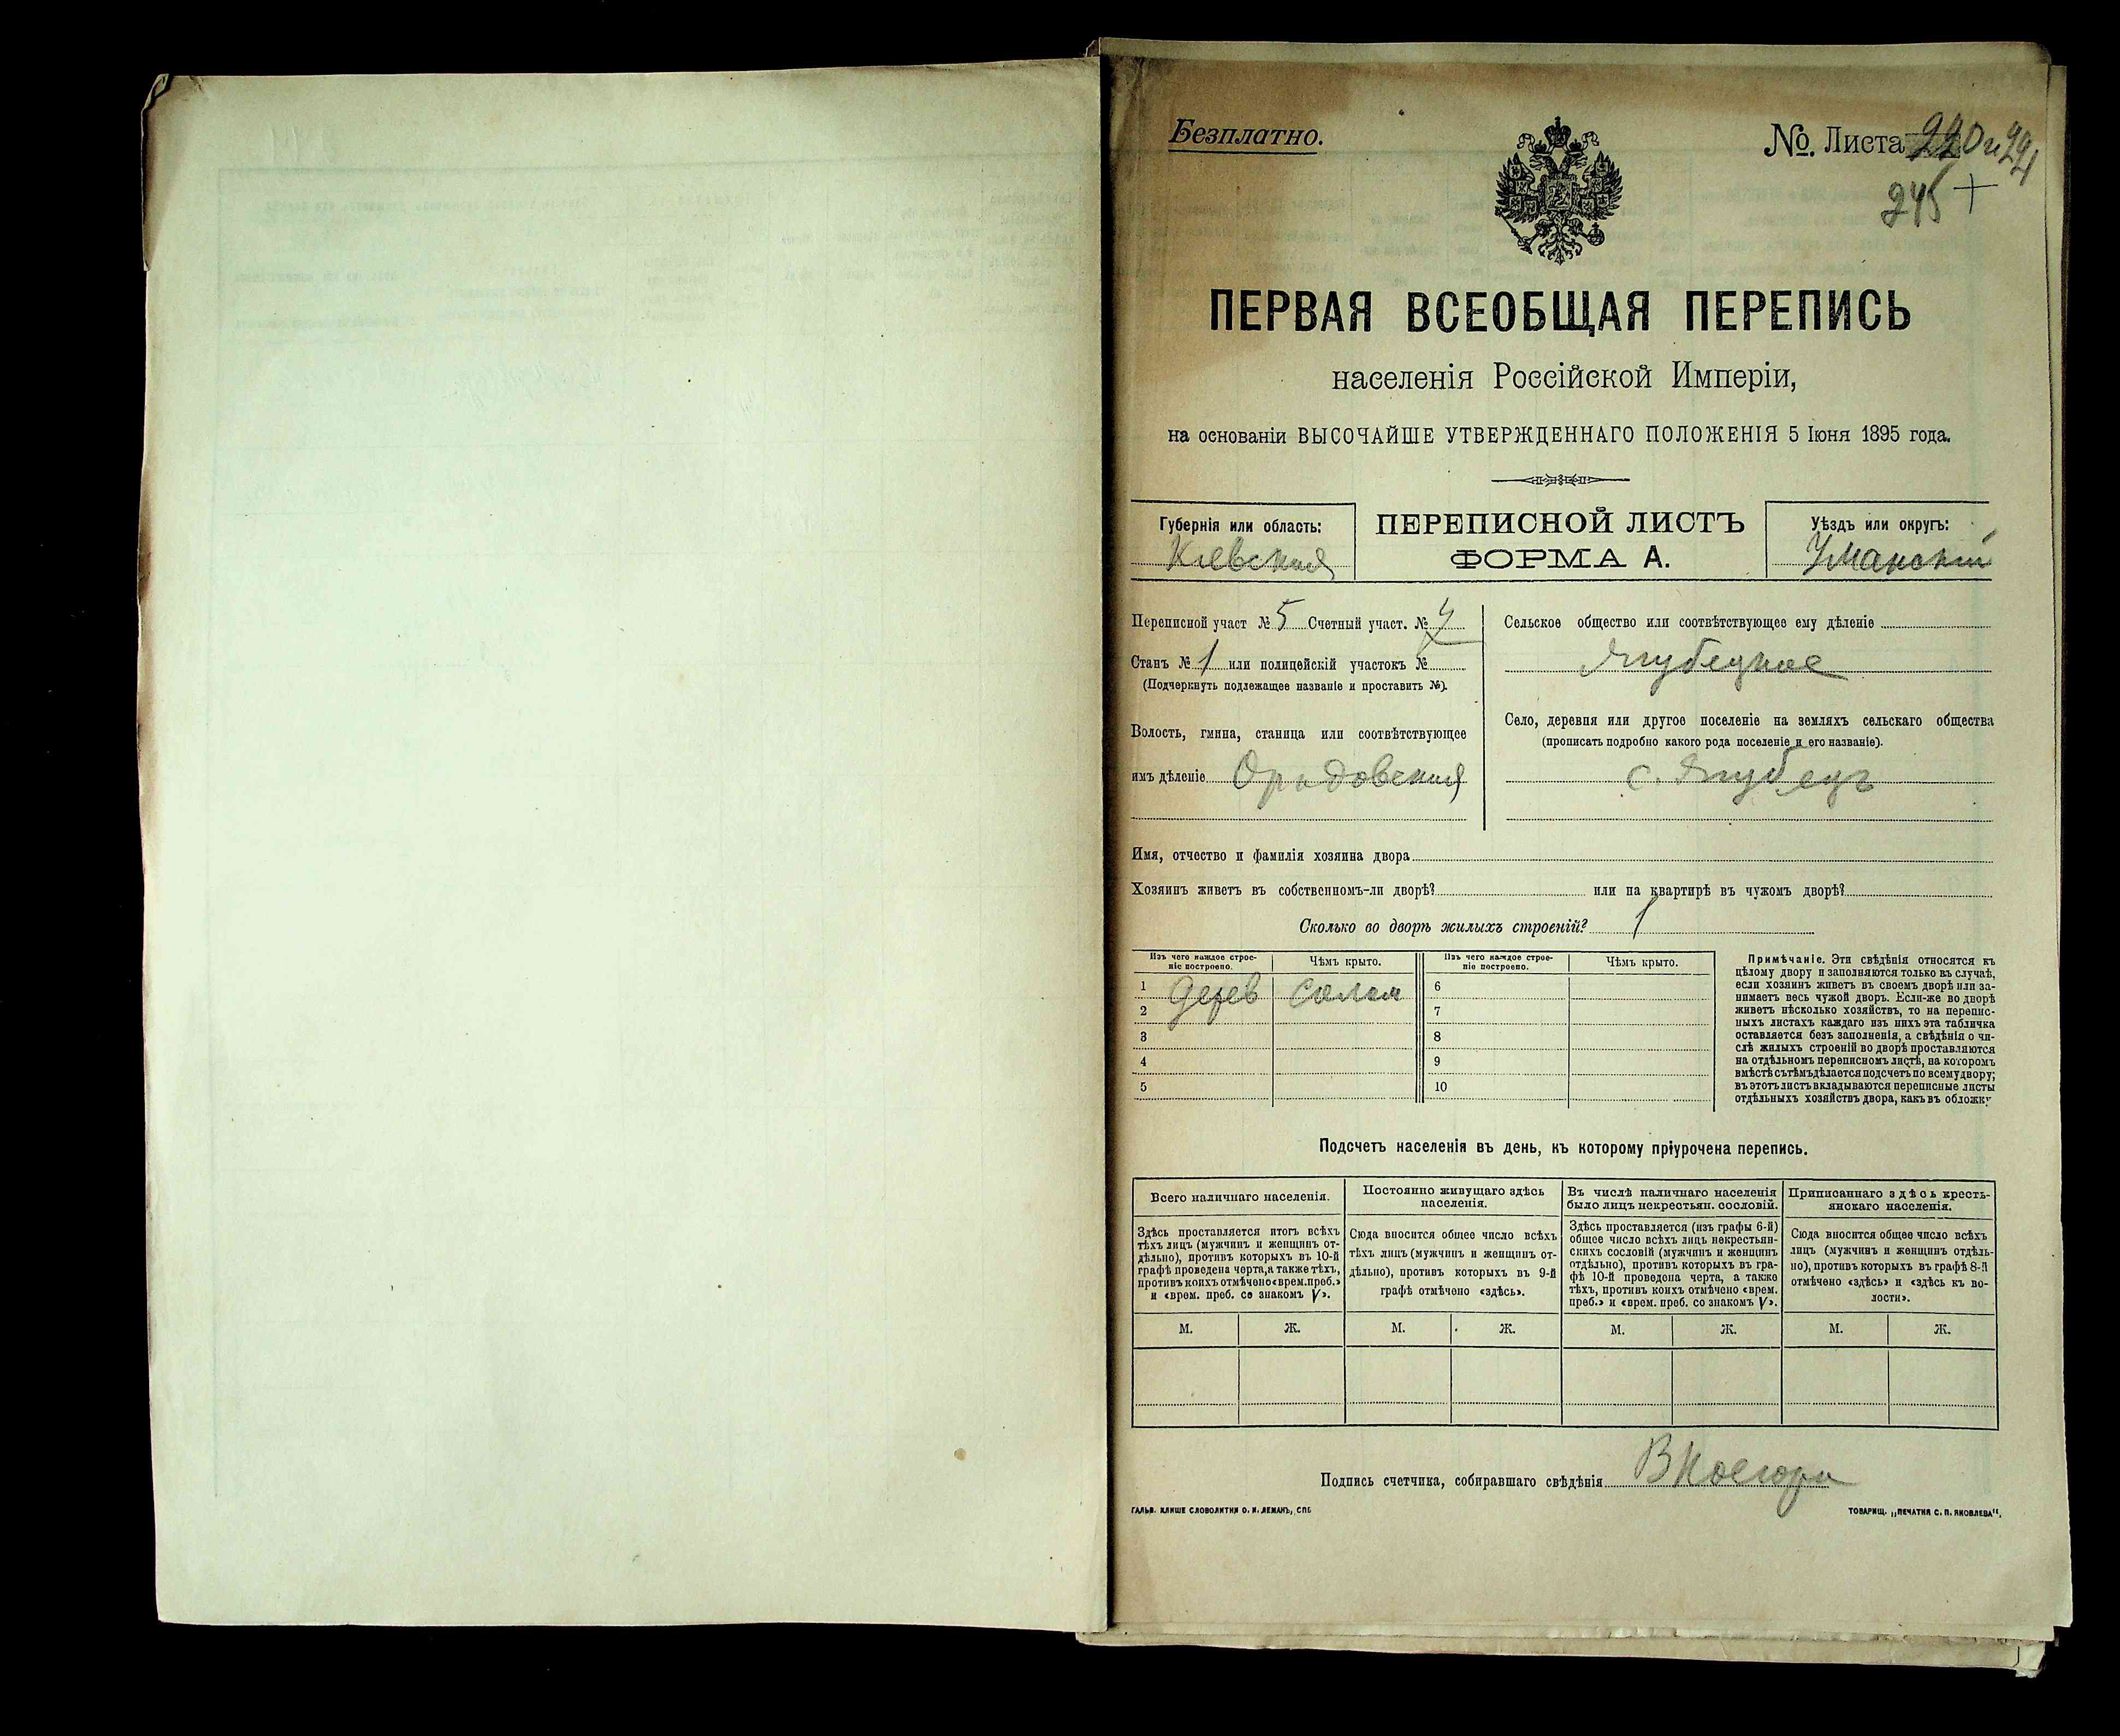 Безплатно.
№. Листа
245 +
ПЕРВАЯ ВСЕОБЩАЯ ПЕРЕПИСЬ
населенія Россійской Имперіи,
на основаніи ВЫСОЧАЙШЕ УТВЕРЖДЕННАГО ПОЛОЖЕНІЯ 5 Іюня 1895 года.
Губернія или область:
Кіевская
ПЕРЕПИСНОЙ ЛИСТЪ
ФОРМА А.
Уѣздъ или округъ:
Уманскій
Переписной участ № 5 Счетный участ. № 4
Станъ № 1 или полицейскій участокъ №
(Подчеркнуть подлежащее названіе и проставить №).
Волость, гмина, станица или соотвѣтствующее
имъ дѣленіе
Сельское общество или соотвѣтствующее ему дѣленіе
Ягубецкое
Село, деревня или другое поселеніе на земляхъ сельскаго общества
(прописать подробно какого рода поселеніе и его названіе).
с. Ягубецъ
Имя, отчество и фамилія хозяина двора
Хозяинъ живетъ въ собственномъ-ли дворѣ? или на квартирѣ въ чужомъ дворѣ?
Сколько во дворѣ жилыхъ строеній? 1
Изъ чего каждое строе-
ніе построено.
Чѣмъ крыто.
1 Дерев Солом
2
3
4
5
Изъ чего каждое строе-
ніе построено.
Чѣмъ крыто.
6
7
8
9
10
Примѣчаніе. Эти свѣдѣнія относятся къ
цѣлому двору и заполняются только въ случаѣ,
если хозяинъ живетъ въ своемъ дворѣ или за-
нимаетъ весь чужой дворъ. Если-же во дворѣ
живетъ нѣсколько хозяйствъ, то на перепис-
ныхъ листахъ каждаго изъ нихъ эта табличка
оставляется безъ заполненія, а свѣдѣнія о чи-
слѣ жилыхъ строеній во дворѣ проставляются
на отдѣльномъ переписномъ листѣ, на которомъ
вмѣстѣ съ тѣмъ дѣлается подсчетъ по всему двору;
въ этотъ листъ вкладываются переписные листы
отдѣльныхъ хозяйствъ двора, какъ въ обложку
Подсчетъ населенія въ день, къ которому пріурочена перепись.
Всего наличнаго населенія.
Здѣсь проставляется итогъ всѣхъ
тѣхъ лицъ (мужчинъ и женщинъ от-
дѣльно), противъ которыхъ въ 10-й
графѣ проведена черта, а также тѣхъ,
противъ коихъ отмѣчено «врем. преб.»
и «врем. преб. со знакомъ V».
М. Ж.
Постоянно живущаго здѣсь
населенія.
Сюда вносится общее число всѣхъ
тѣхъ лицъ (мужчинъ и женщинъ от-
дѣльно), противъ которыхъ въ 9-й
графѣ отмѣчено «здѣсь».
М. Ж.
Въ числѣ наличнаго населенія
было лицъ некрестьян. сословій.
Здѣсь проставляется (изъ графы 6-й)
общее число всѣхъ лицъ некрестьян-
скихъ сословій (мужчинъ и женщинъ
отдѣльно), противъ которыхъ въ гра-
фѣ 10-й проведена черта, а также
тѣхъ, противъ коихъ отмѣчено «врем.
преб.» и «врем. преб. со знакомъ V».
М. Ж.
Приписаннаго здѣсь кресть-
янскаго населенія.
Сюда вносится общее число всѣхъ
лицъ (мужчинъ и женщинъ отдѣль-
но), противъ которыхъ въ графѣ 8-й
отмѣчено «здѣсь» и «здѣсь къ во-
лости».
М. Ж.
Подпись счетчика, собиравшаго свѣдѣнія
ГАЛЬВ. КЛИШЕ СЛОВОЛИТНИ О. И. ЛЕМАНЪ, СПБ
ТОВАРИЩ. „ПЕЧАТНЯ С. П. ЯКОВЛЕВА".